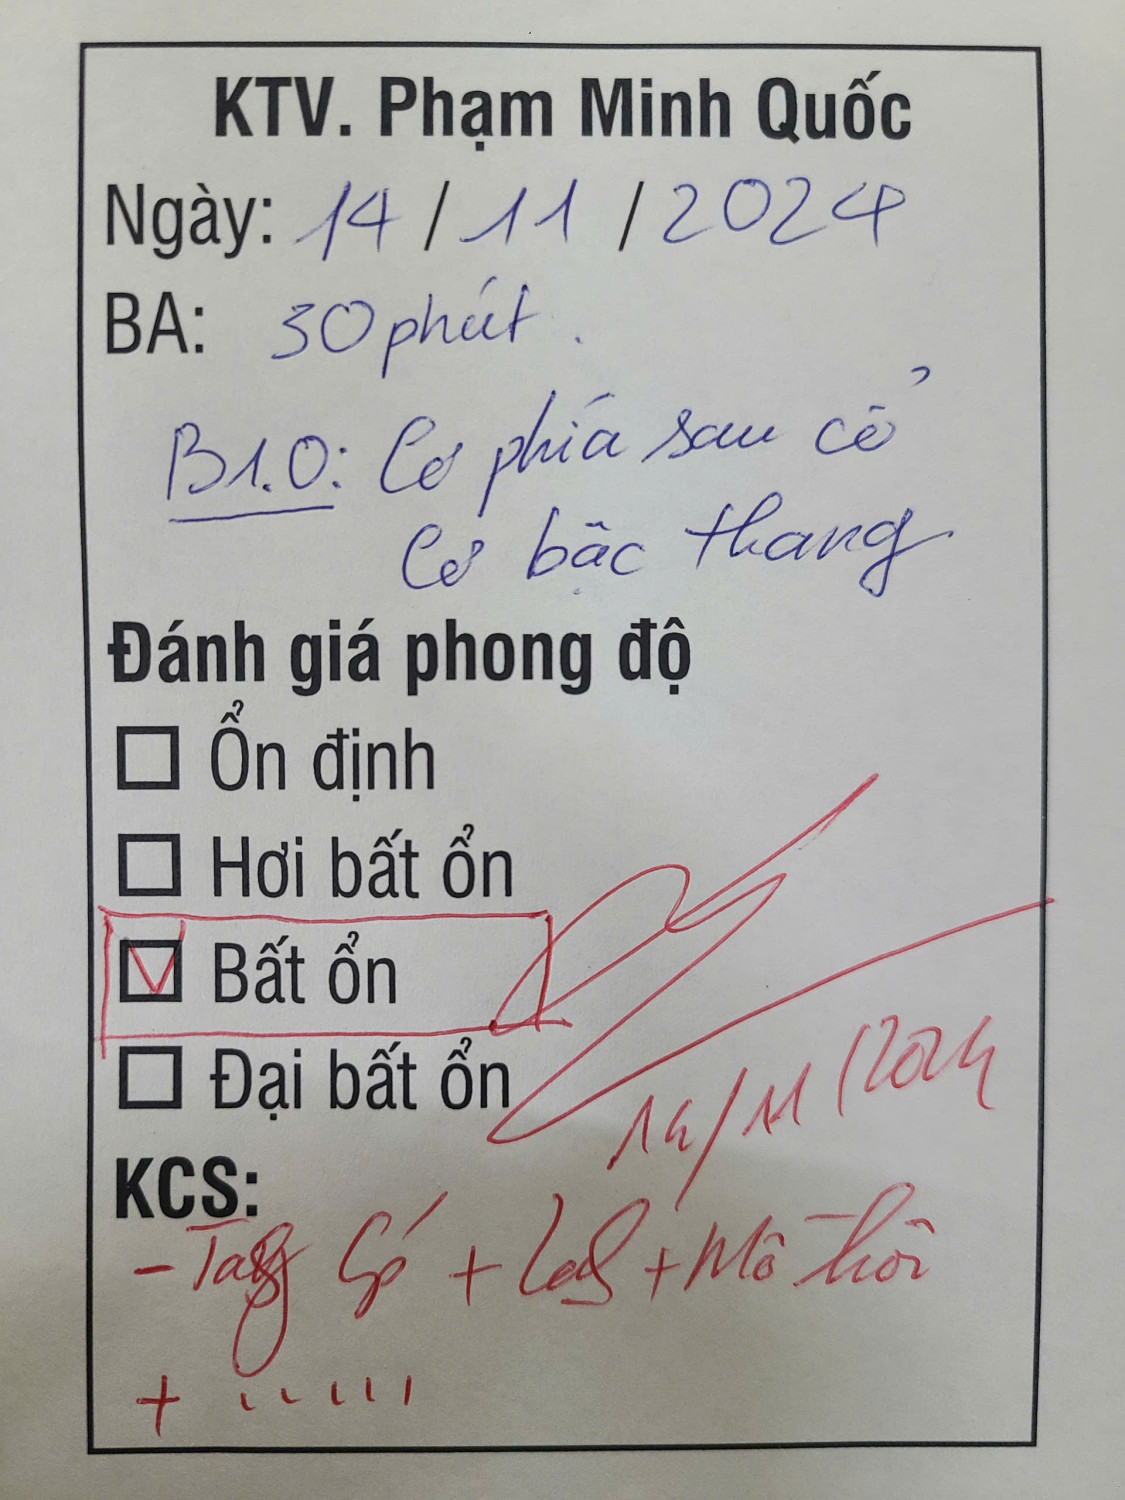 KTV. Phạm Minh Quốc
Ngày: 14 / 11 / 2024
BA: 30 phút.
B1.0: Cơ phía sau cổ
Cơ bậc thang
Đánh giá phong độ
Ổn định
Hơi bất ổn
Bất ổn
Đại bất ổn
14/11/2024
KCS:
- + + Mô
+